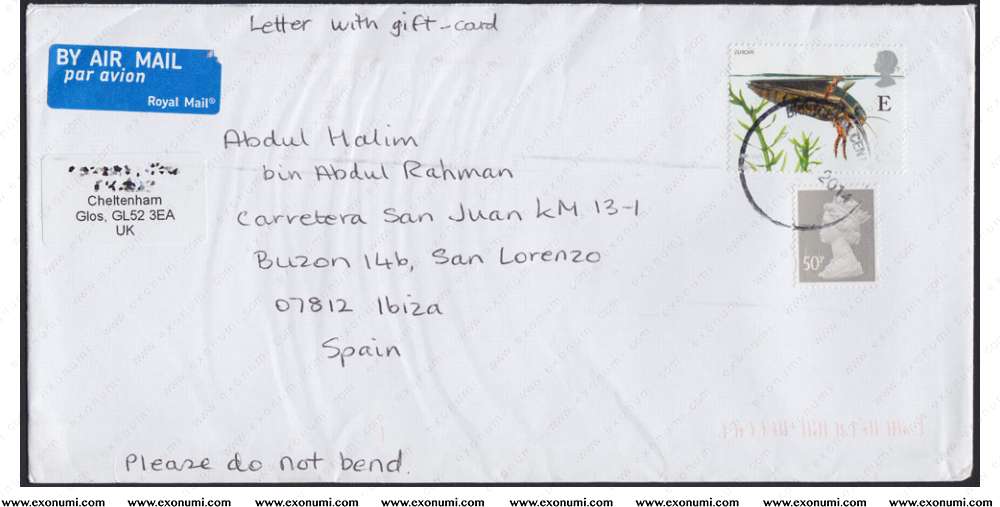 Letter with gift-card
BY AIR MAIL
par avion
Royal Mail®
EUROPA
E
2014
50P
Cheltenham
Glos, GL52 3EA
UK
Abdul Halim
bin Abdul Rahman
Carretera San Juan KM 13-1
Buzon 14b, San Lorenzo
07812 Ibiza
Spain
Please do not bend.
www.exonumi.com www.exonumi.com www.exonumi.com www.exonumi.com www.exonumi.com www.exonumi.com www.exonumi.com www.exonumi.com